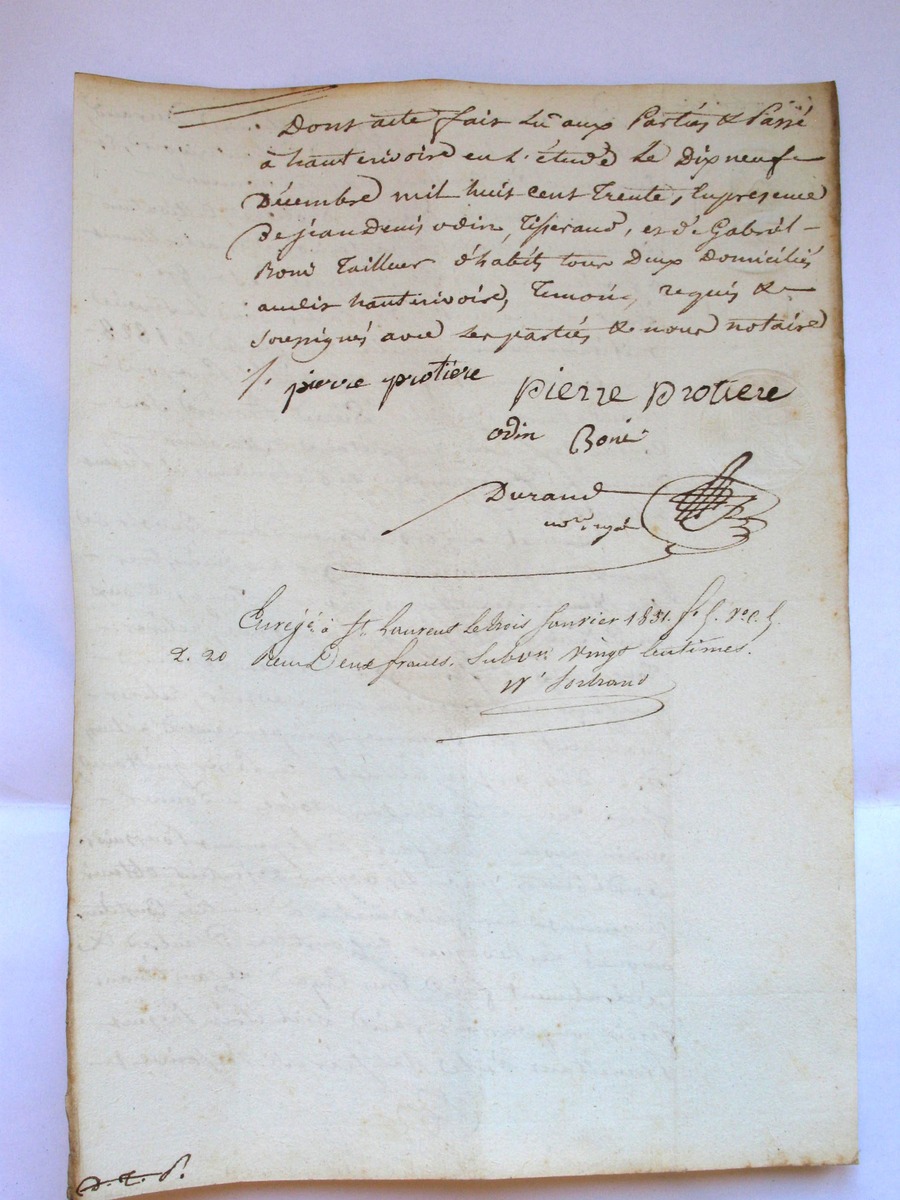 Dont acte fait Lu aux Parties & Passé
à hauterivoire en L'étude Le Dix neuf
Décembre mil huit cent Trente, En presence
De jean Denis odin, Tisserand, et de Gabriel
Boné Tailleur d'habits tous Deux Domiciliés
audit hauterivoire, Temoins requis &
soussignés avec Les parties & nous notaire
pierre protiere
pierre protiere
odin Boné
Durand
nore. royal
Enregé à St Laurent le trois Janvier 1831. fo 5. Vo. C. 5
2. 20 Reçu Deux francs. Subvon vingt Centimes.